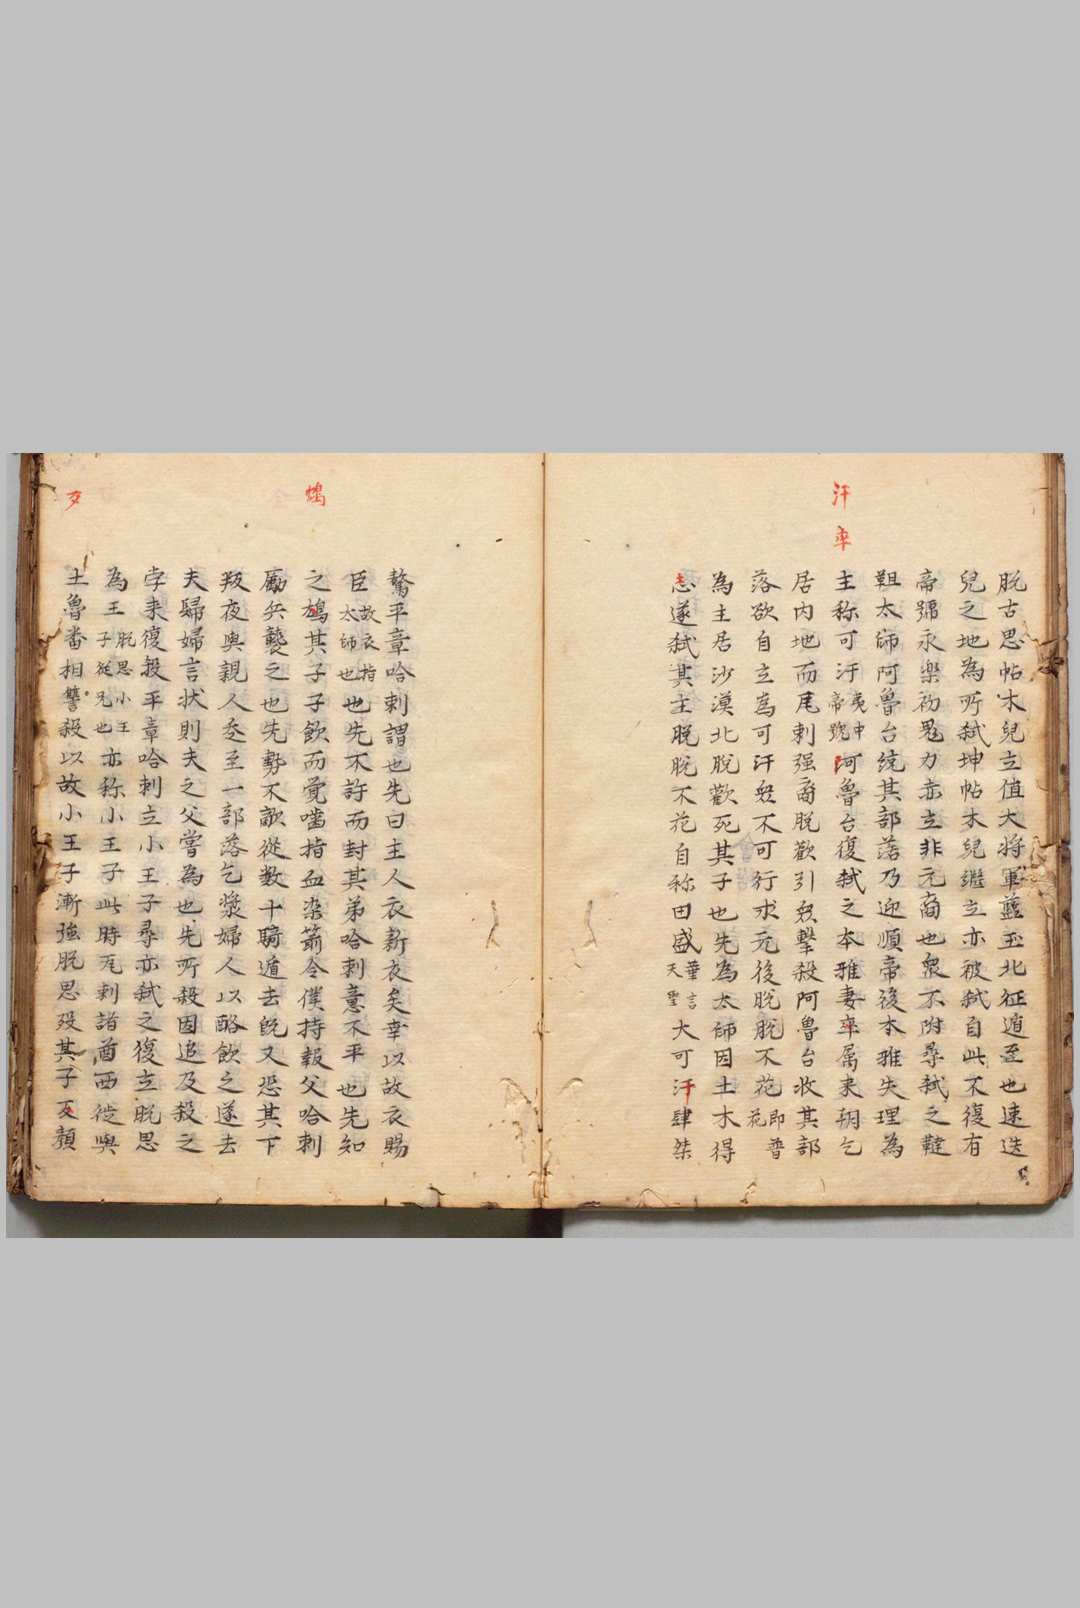 汗
率
脱古思帖木兒立值大將軍藍玉北征遁至也速迭
兒之地為所弒坤帖木兒繼立亦被弒自此不復有
帝號永樂初鬼力赤立非元裔也衆不附尋弒之韃
靼太師阿魯台統其部落乃迎順帝後本雅失理為
主称可汗夷中帝號阿魯台復弒之本雅妻率属来朝乞
居内地而尾剌强裔脱歡引衆擊殺阿魯台收其部
落欲自立為可汗衆不可行求元後脱脱不花即普花
為主居沙漠北脱歡死其子也先為太師因土木得
志遂弒其主脱脱不花自称田盛華言天聖大可汗肆桀
鴆
歹
驁平章哈剌謂也先曰主人衣新衣矣幸以故衣賜
臣故衣指太師也也先不許而封其弟哈剌意不平也先知
之鴆其子子飲而覺噬指血染箭令僕持報父哈剌
勵兵襲之也先勢不敵從数十騎遁去旣又恐其下
叛夜與親人奔至一部落乞漿婦人以酪飲之遂去
夫歸婦言状則夫之父嘗為也先所殺因追及殺之
孛来復殺平章哈剌立小王子尋亦弒之復立脱思
為王脱思小王子從兄也亦称小王子此時尾剌諸酋西徙與
土魯畨相讐殺以故小王子漸強脱思殁其子歹顏